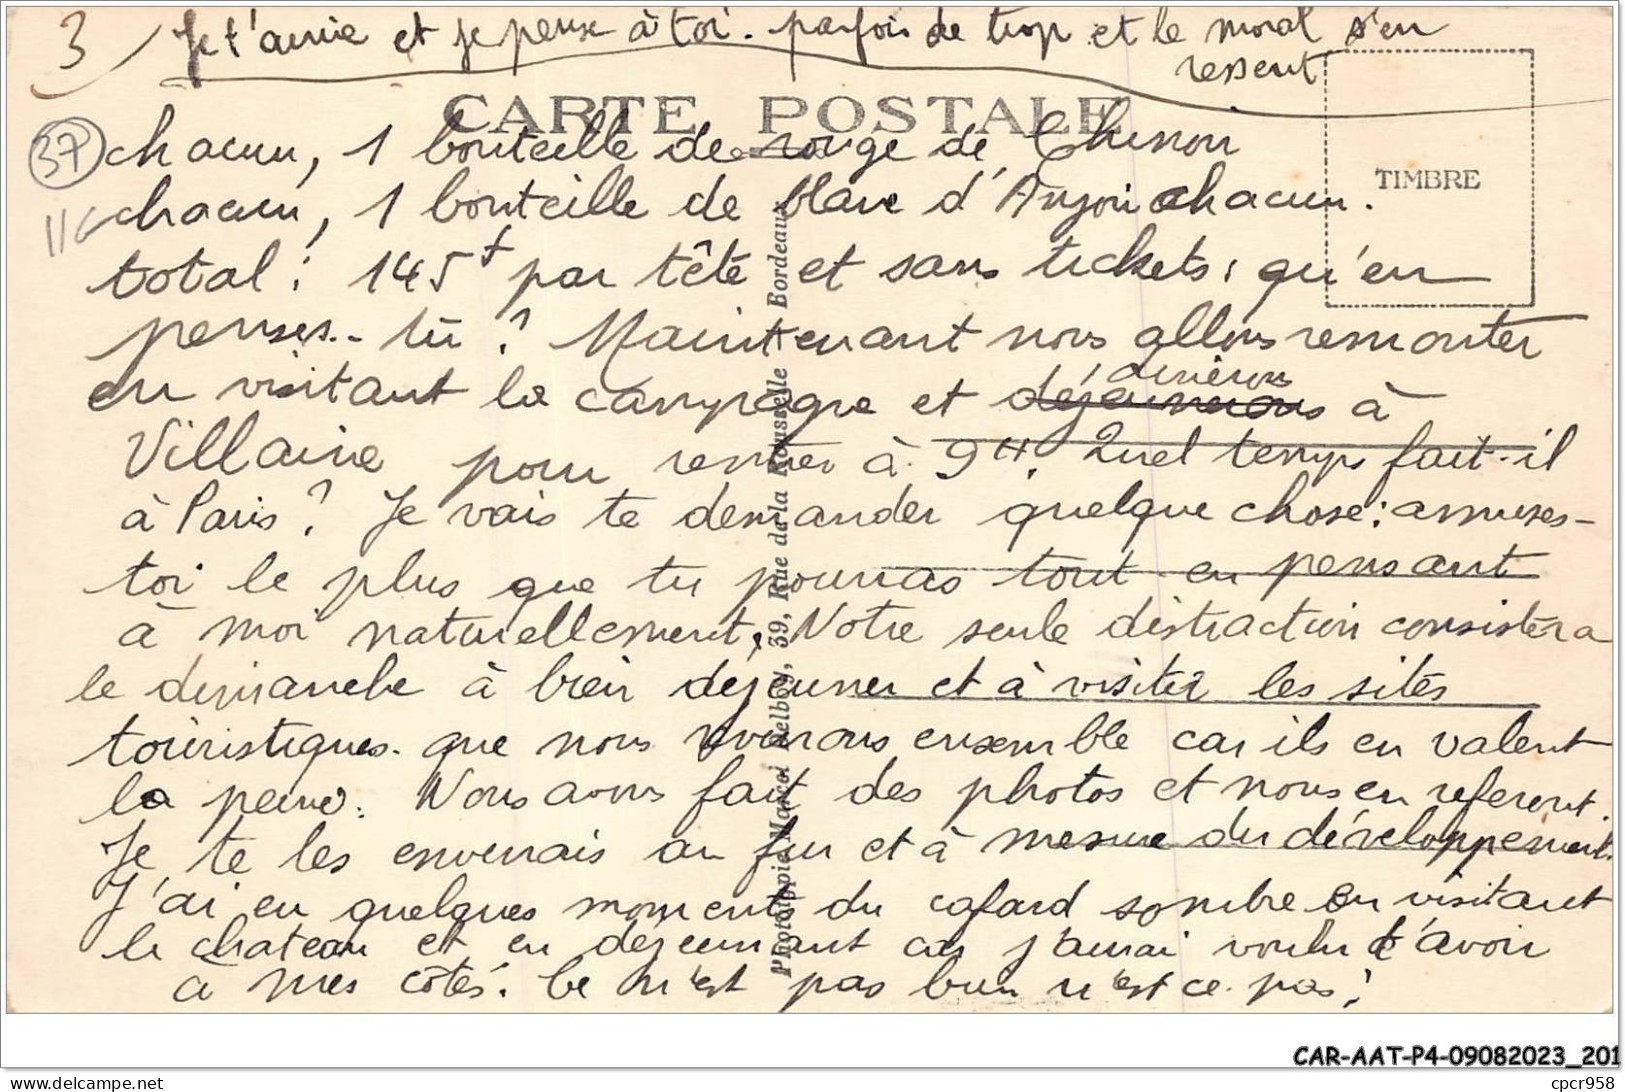 3
Je t'aime et je pense à toi. parfois de trop et le moral s'en
ressent
CARTE POSTALE
TIMBRE
37
chacun, 1 bouteille de rouge de Chinon
116
chacun, 1 bouteille de blanc d'Anjou chacun.
total : 145f par tête et sans tickets ; qu'en
penses-tu ? Maintenant nous allons remonter
en visitant la campagne et déjeunerons dinerons à
Villaine pour rentrer à 9H. Quel temps fait-il
à Paris ? Je vais te demander quelque chose : amuses-
toi le plus que tu pourras tout en pensant
à moi naturellement. Notre seule distraction consistera
le dimanche à bien dejeuner et à visiter les sites
touristiques que nous verrons ensemble car ils en valent
la peine. Nous avons fait des photos et nous en referont.
Je te les enverrais au fur et à mesure du développement.
J'ai eu quelques moments du cafard sombre en visitant
le chateau et en dejeunant car j'aurai voulu t'avoir
à mes côtés. Ce n'est pas bien n'est ce pas !
Phototypie Marcel Delboy, 39, Rue de la Rousselle Bordeaux
CAR-AAT-P4-09082023_201
cpcr958